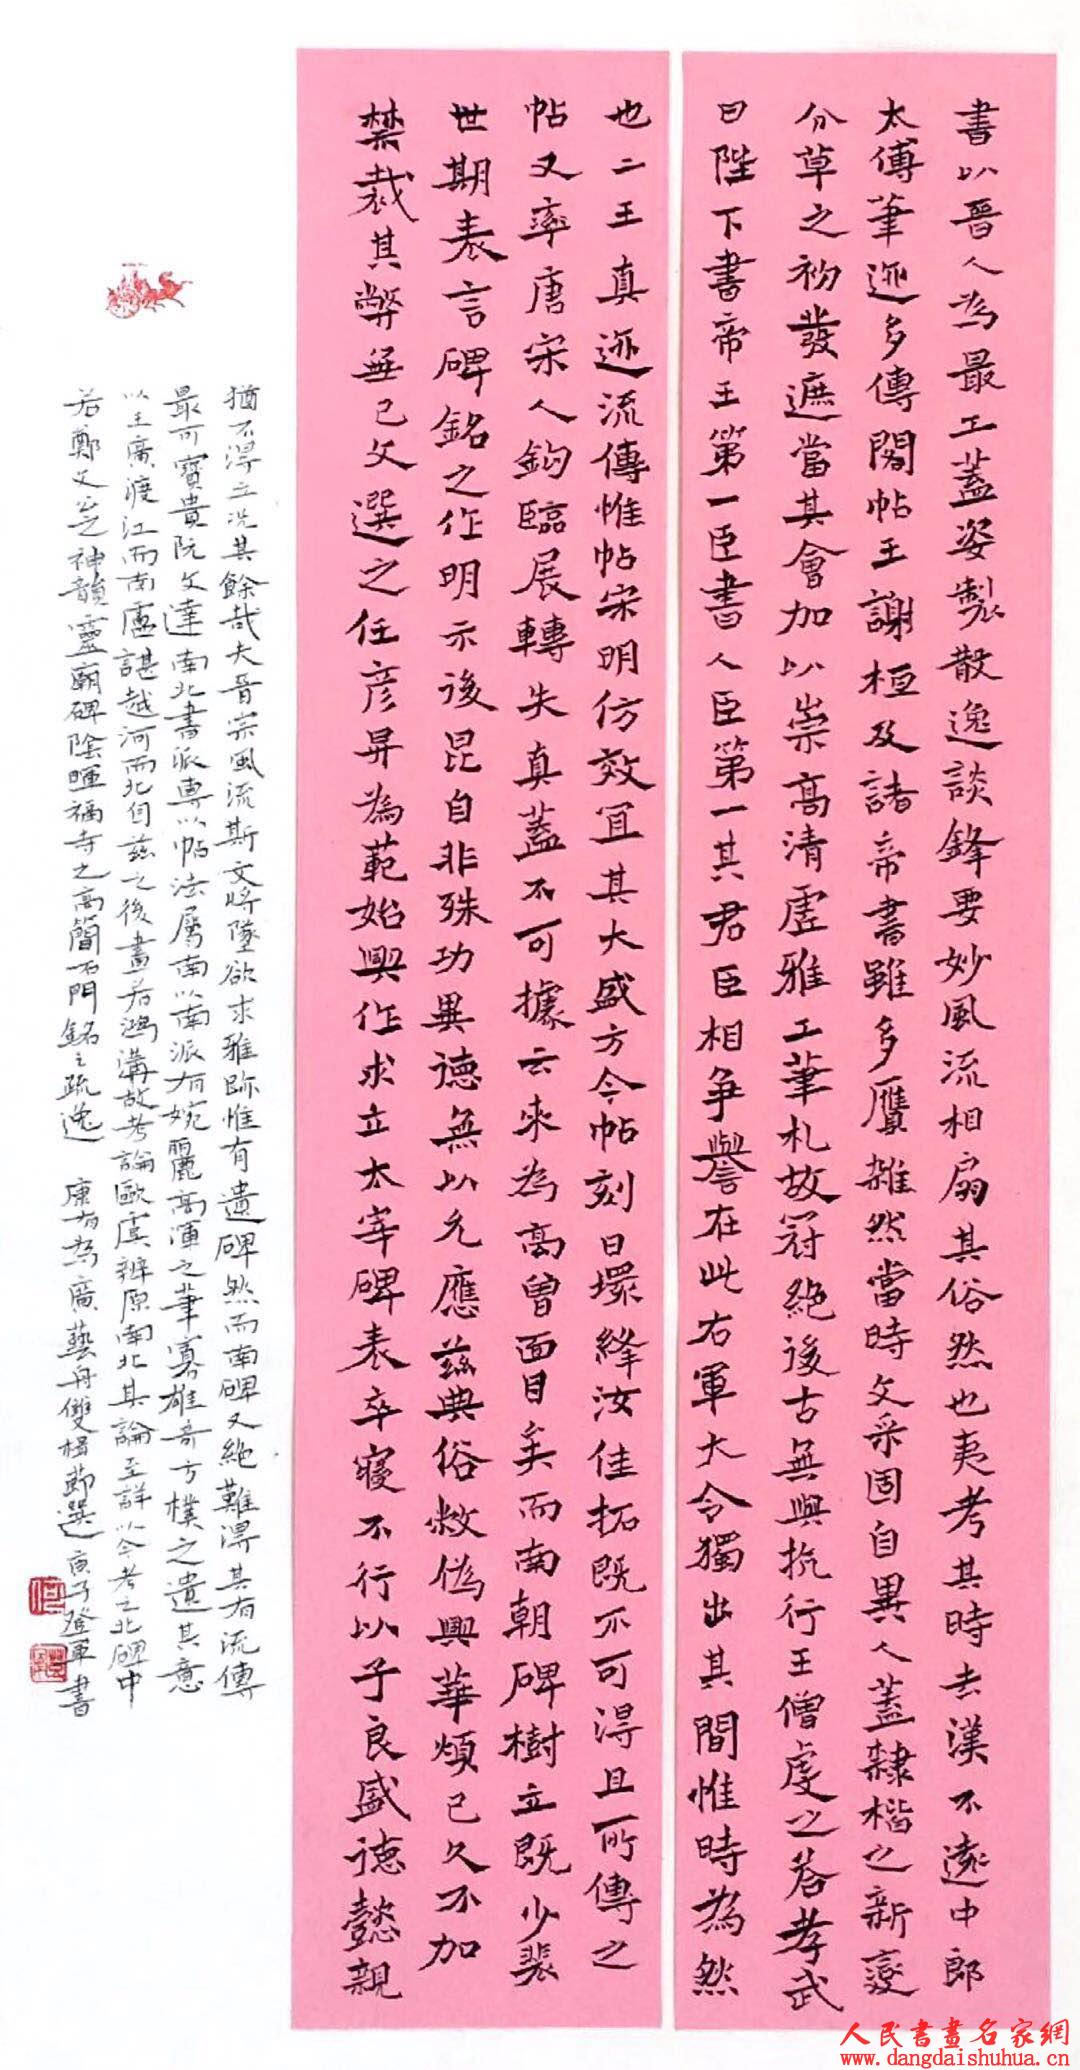 書以晉人為最工蓋姿製散逸談鋒要妙風流相扇其俗然也夷考其時去漢不遠中郎
太傅筆迹多傳閣帖王謝桓及諸帝書雖多贋雜然當時文采固自異人蓋隸楷之新變
分草之初發遮當其會加以崇高清虛雅工筆札故冠絕後古無與抗行王僧虔之答孝武
曰陛下書帝王第一臣書人臣第一其君臣相爭譽在此右軍大令獨出其間惟時為然
也二王真迹流傳惟帖宋明仿效宜其大盛方今帖刻日壞絳汝佳拓既不可得且所傳之
帖又率唐宋人鈎臨展轉失真蓋不可據云來為高曾面目矣而南朝碑樹立既少裴
世期表言碑銘之作明示後昆自非殊功異德無以允應茲典俗敝偽興華煩已久不加
禁裁其弊無已文選之任彥昇為范始興作求立太宰碑表卒寢不行以子良盛德懿親
猶不得立況其餘哉夫晉宋風流斯文將墜欲求雅跡惟有遺碑然而南碑又絕難得其有流傳
最可寶貴阮文達南北書派專以帖法屬南以南派有婉麗高渾之筆寡雄奇方樸之遺其意
以王廣渡江而南盧諶越河而北自茲之後畫若鴻溝故考論歐虞辨原南北其論至詳以今考之北碑中
若鄭文公之神韻靈廟碑陰暉福寺之高簡石門銘之疏逸 康有為廣藝舟雙楫節選 庚子登軍書
人民書畫名家網
www.dangdaishuhua.cn